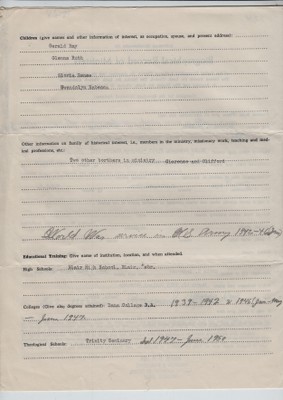 Children (give names and other information of interest, as occupation, spouse, and present address):
Gerald Ray
Ruth
Other information on family of historical interest, i.e., members in the ministry, missionary work, teaching and medical professions, etc.:
Two other brothers in ministry Clarence and Clifford
World War service in U.S. Army 1942-
Educational Training: (Give name of institution, location, and when attended.
High School: Blair High School, Blair, Nebr.
Colleges (Give also degrees attained): Dana College B.A. 1939-1942 & 1946 (Jan-May)
– June 1947.
Theological Schools: Trinity Seminary Sept 1947 – June 1950